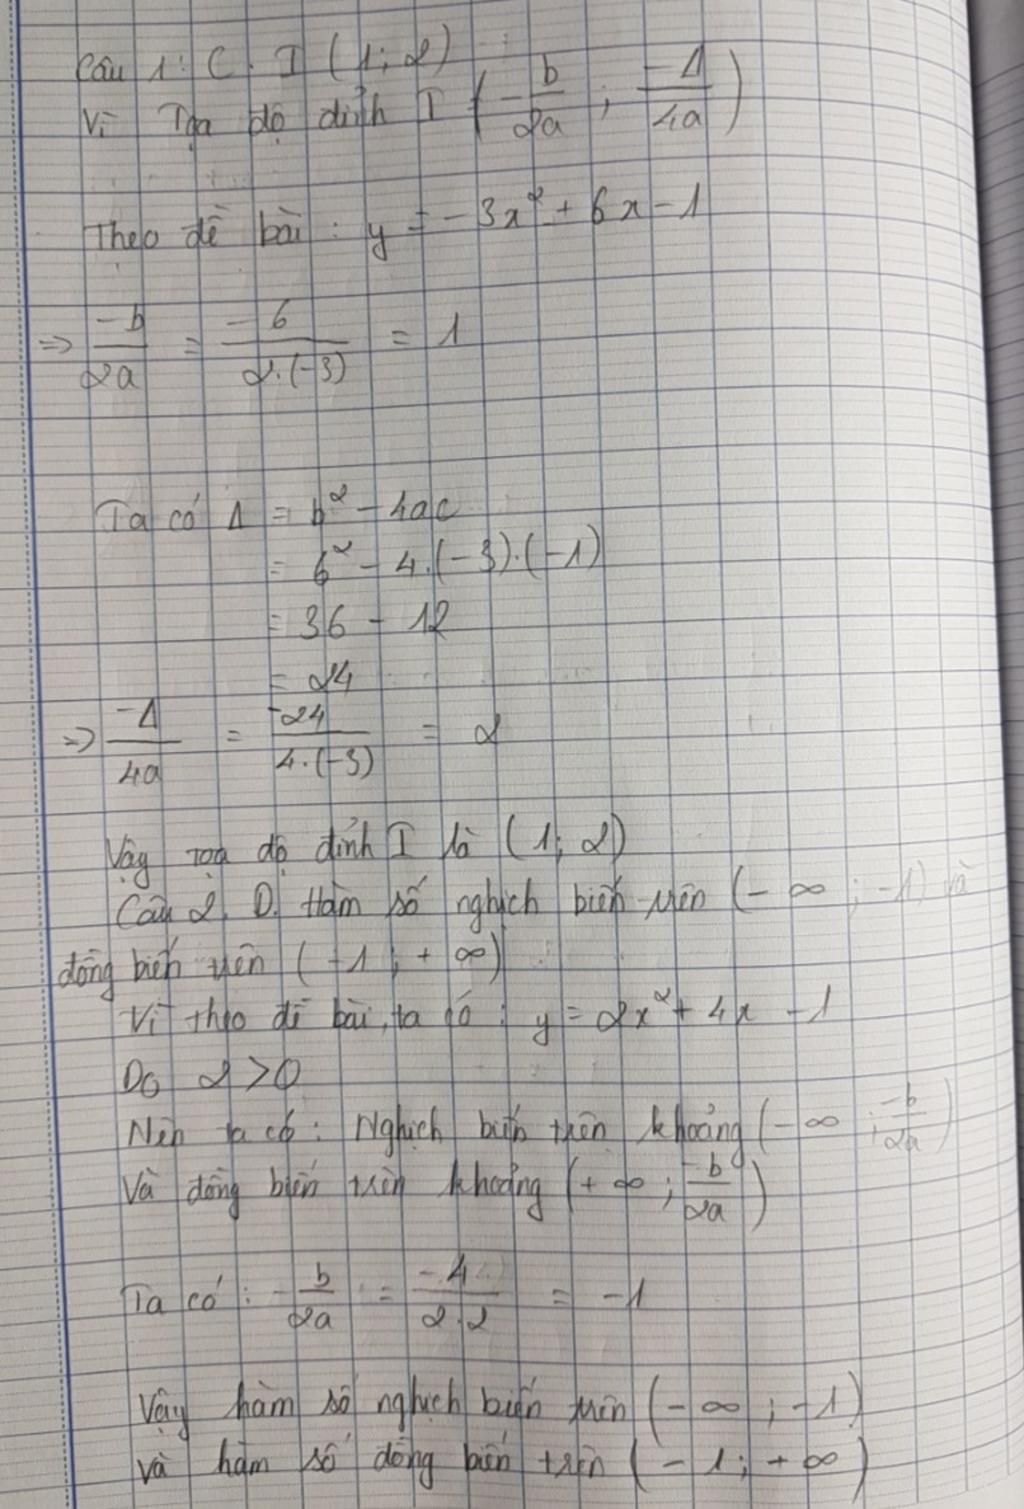 Câu 1: C. I (1; 2)
Vì Tọa độ đỉnh I (-b/2a ; -Δ/4a)
Theo đề bài: y = -3x² + 6x - 1
=> -b/2a = -6/2.(-3) = 1
Ta có Δ = b² - 4ac
= 6² - 4.(-3).(-1)
= 36 - 12
= 24
=> -Δ/4a = -24/4.(-3) = 2
Vậy tọa độ đỉnh I là (1; 2)
Câu 2. D. Hàm số nghịch biến trên (-∞ ; -1) và
đồng biến trên (-1; +∞)
Vì theo đề bài, ta có: y = 2x² + 4x - 1
Do 2 > 0
Nên ta có: Nghịch biến trên khoảng (-∞ ; -b/2a)
Và đồng biến trên khoảng (+∞ ; -b/2a)
Ta có: -b/2a = -4/2.2 = -1
Vậy hàm số nghịch biến trên (-∞ ; -1)
và hàm số đồng biến trên (-1; +∞)